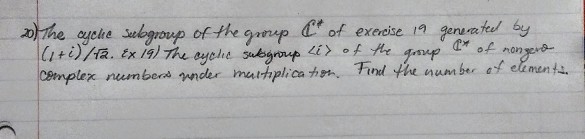 20) The cyclic subgroup of the group ℂ* of exercise 19 generated by
(1+i)/√2. Ex 19) The cyclic subgroup <i> of the group ℂ* of nonzero
complex numbers under multiplication. Find the number of elements.